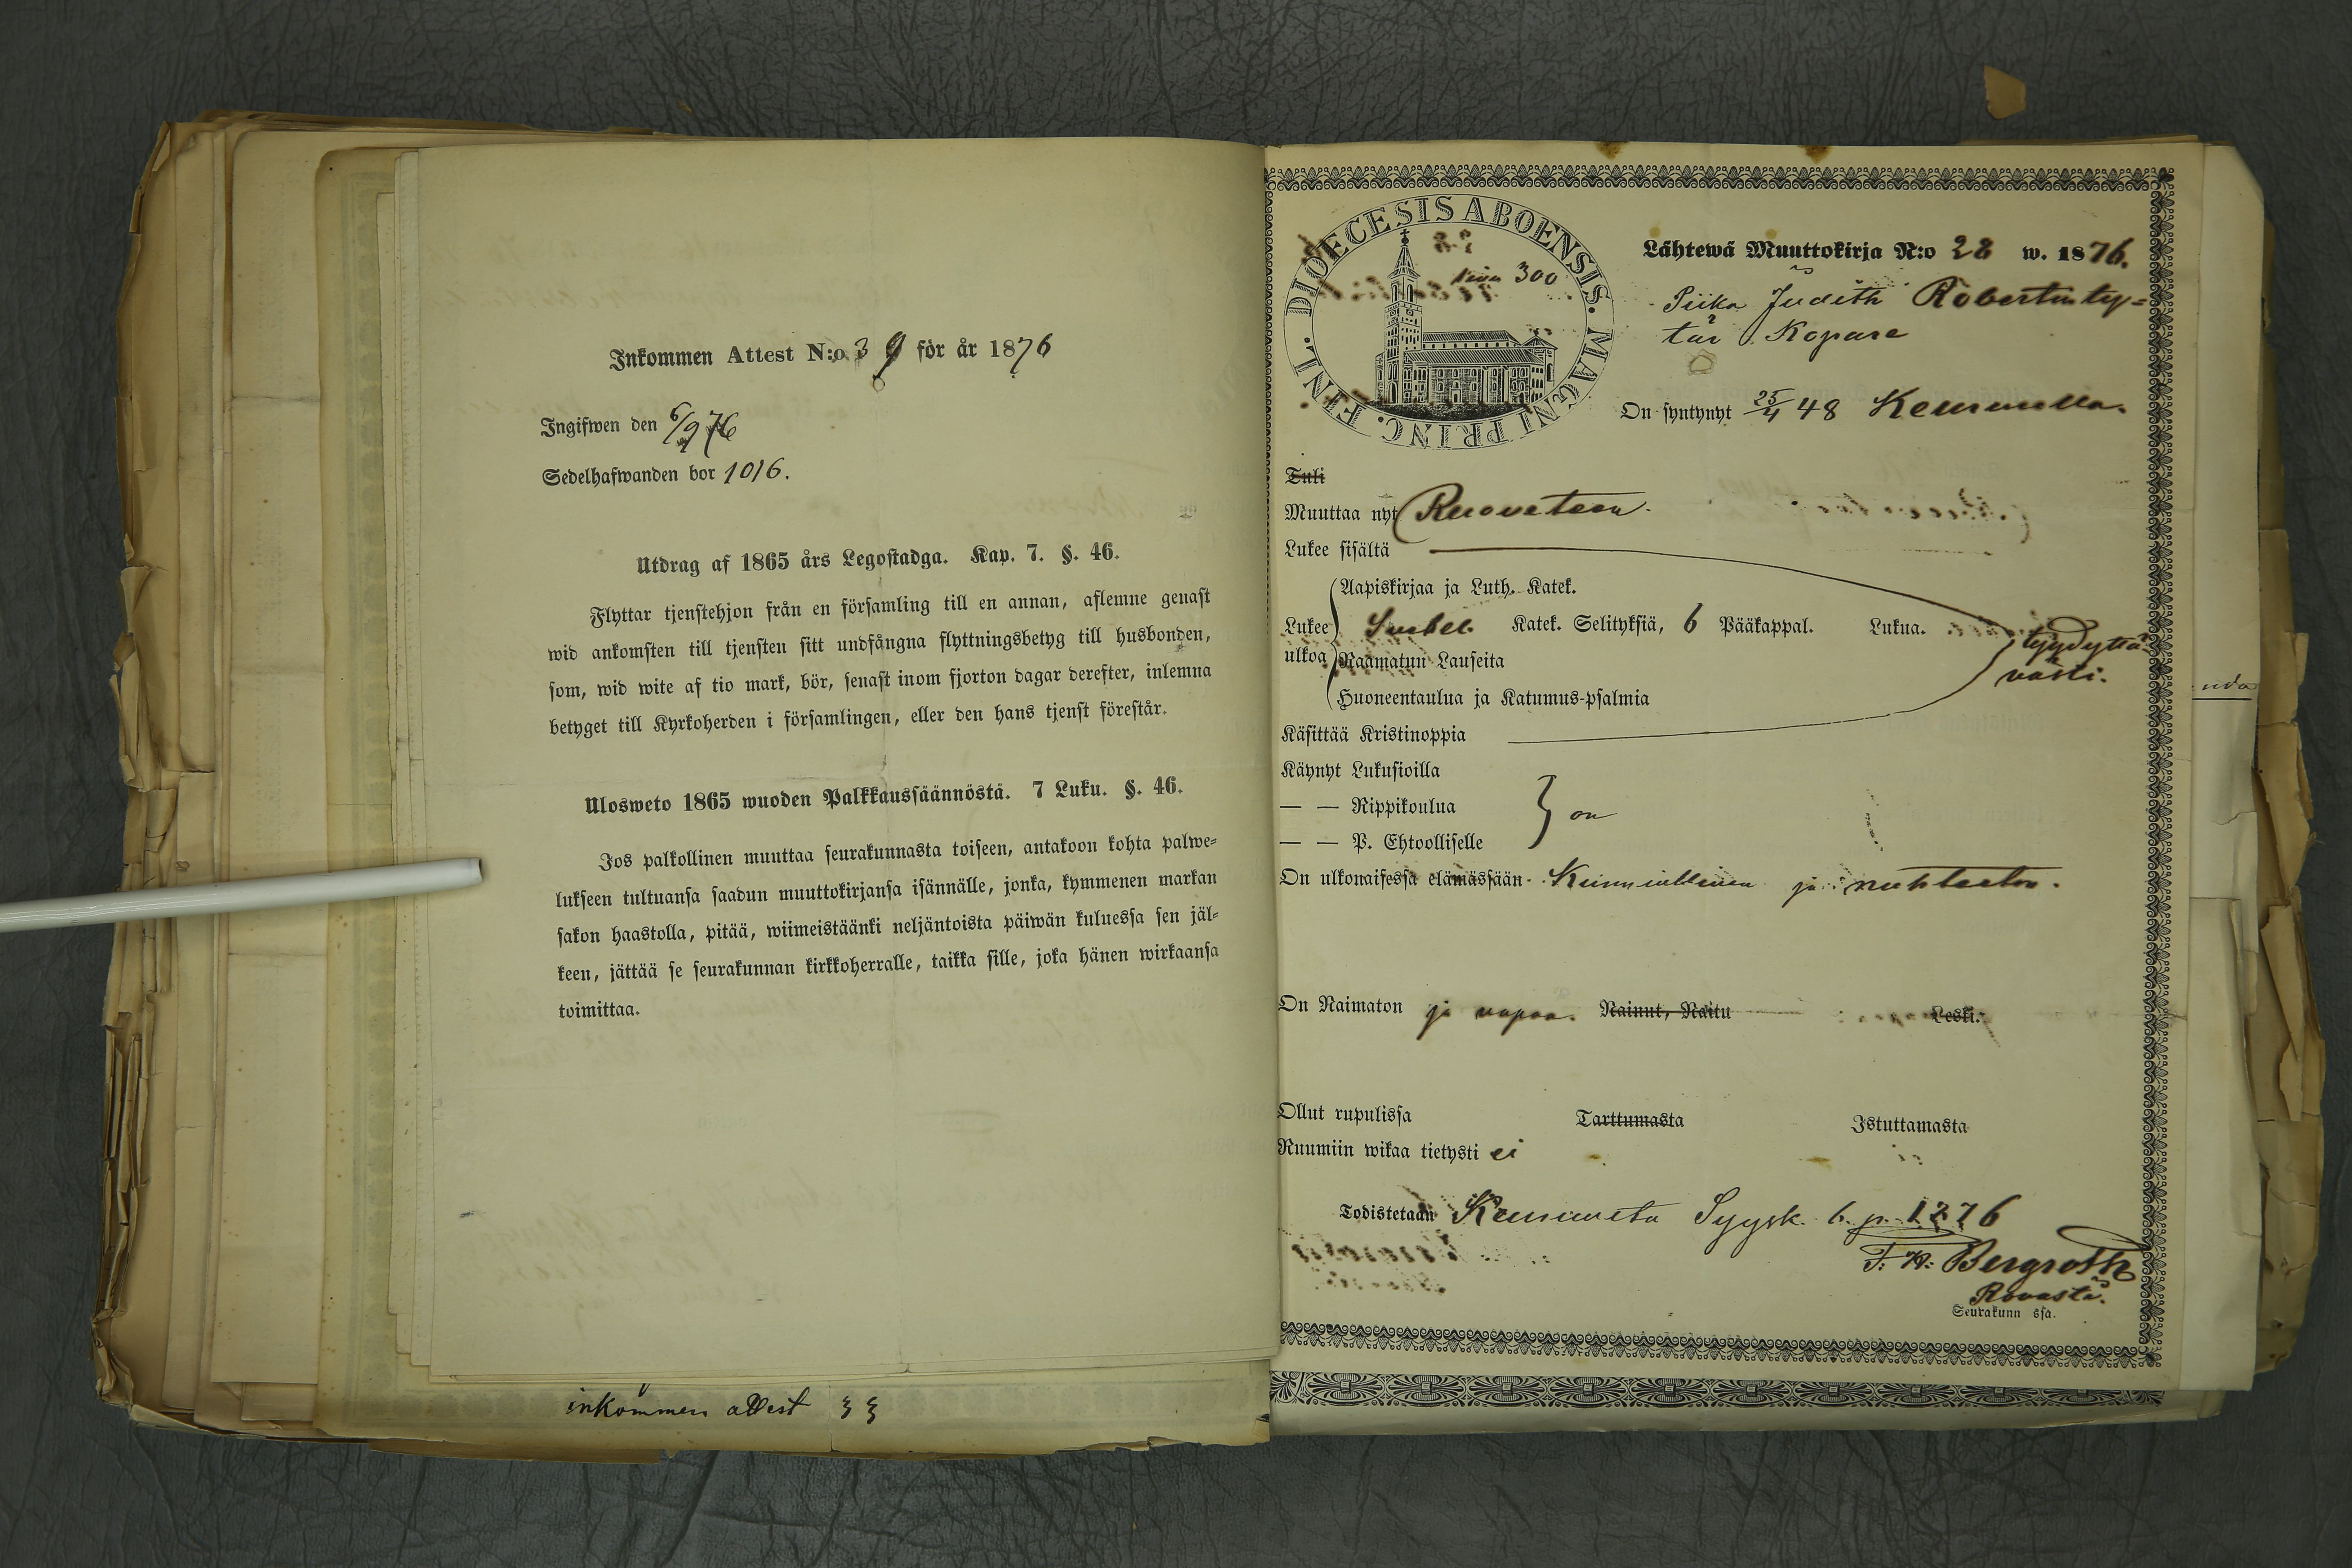 Inkommen Attest N:o 39 för år 1876
Ingifwen den 6/9 76
Sedelhafwanden bor 1016.
Utdrag af 1865 års Legostadga. Kap. 7. §. 46.
Flyttar tjenstehjon från en församling till en annan, aflemne genast
wid ankomsten till tjensten sitt undfångna flyttningsbetyg till husbonden,
som, wid wite af tio mark, bör, senast inom fjorton dagar derefter, inlemna
betyget till Kyrkoherden i församlingen, eller den hans tjenst förestår.
Ulosweto 1865 wuoden Palkkaussäännöstä. 7 Luku. §. 46.
Jos palkollinen muuttaa seurakunnasta toiseen, antakoon kohta palwe-
lukseen tultuansa saadun muuttokirjansa isännälle, jonka, kymmenen markan
sakon haastolla, pitää, wiimeistäänki neljäntoista päiwän kuluessa sen jäl-
keen, jättää se seurakunnan kirkkoherralle, taikka sille, joka hänen wirkaansa
toimittaa.
inkommen attest 33
DIOECESIS ABOENSIS. MAGNI PRINC. FINL.
300
Lähtewä Muuttokirja N:o 28 w. 1876.
Piika Judith Robertinty-
tär Kopare
On syntynyt 25/4 48 Keuruulla.
Tuli
Muuttaa nyt Ruoveteen.
Lukee sisältä
Aapiskirjaa ja Luth. Katek.
Lukee Katek. Selityksiä, 6 Pääkappal. Lukua. tyydyttä-
ulkoa Raamatun Lauseita västi.
Huoneentaulua ja Katumus-psalmia
Käsittää Kristinoppia
Käynyt Lukusioilla
— — Rippikoulua on
— — P. Ehtoolliselle
On ulkonaisessa elämässään Kunniallinen ja nuhteeton.
On Naimaton ja vapaa. Nainut, Naitu Leski.
Ollut rupulissa Tarttumasta Istuttamasta
Ruumiin wikaa tietysti ei
Todistetaan Keuruulta Syysk. 6 p. 1876
F. W. Bergroth
Rovasti.
Seurakunn ssa.